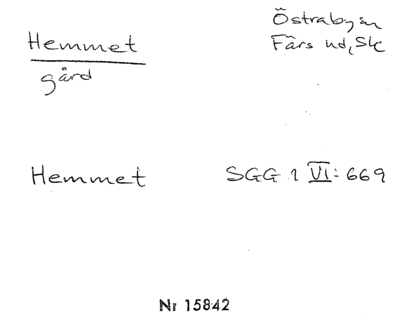 Hemmet
gård
Östraby sn
Färs hd, Sk
Hemmet SGG 1 VI: 669
Nr 15842